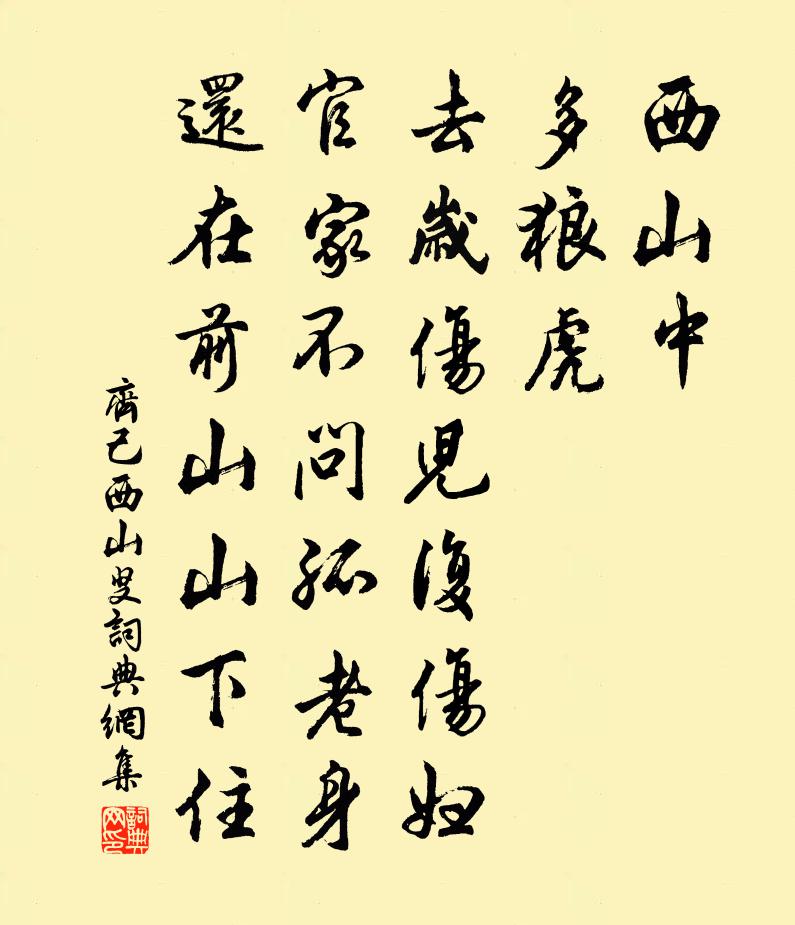 西山中
多狼虎
去歲傷兒復傷婦
官家不問孤老身
還在前山山下住
齊己西山叟詞典網集
詞典
网印